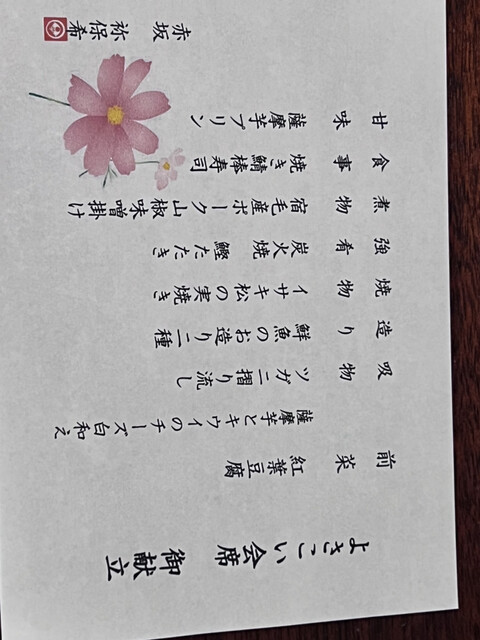 よさこい会席　御献立
前菜　紅葉豆腐
薩摩芋とキウイのチーズ白和え
吸物　ツガニ摺り流し
造り　鮮魚のお造り二種
焼物　イサキ松の実焼き
強肴　炭火焼　鰹たたき
煮物　宿毛産ポーク山椒味噌掛け
食事　焼き鯖棒寿司
甘味　薩摩芋プリン
赤坂　祢保希